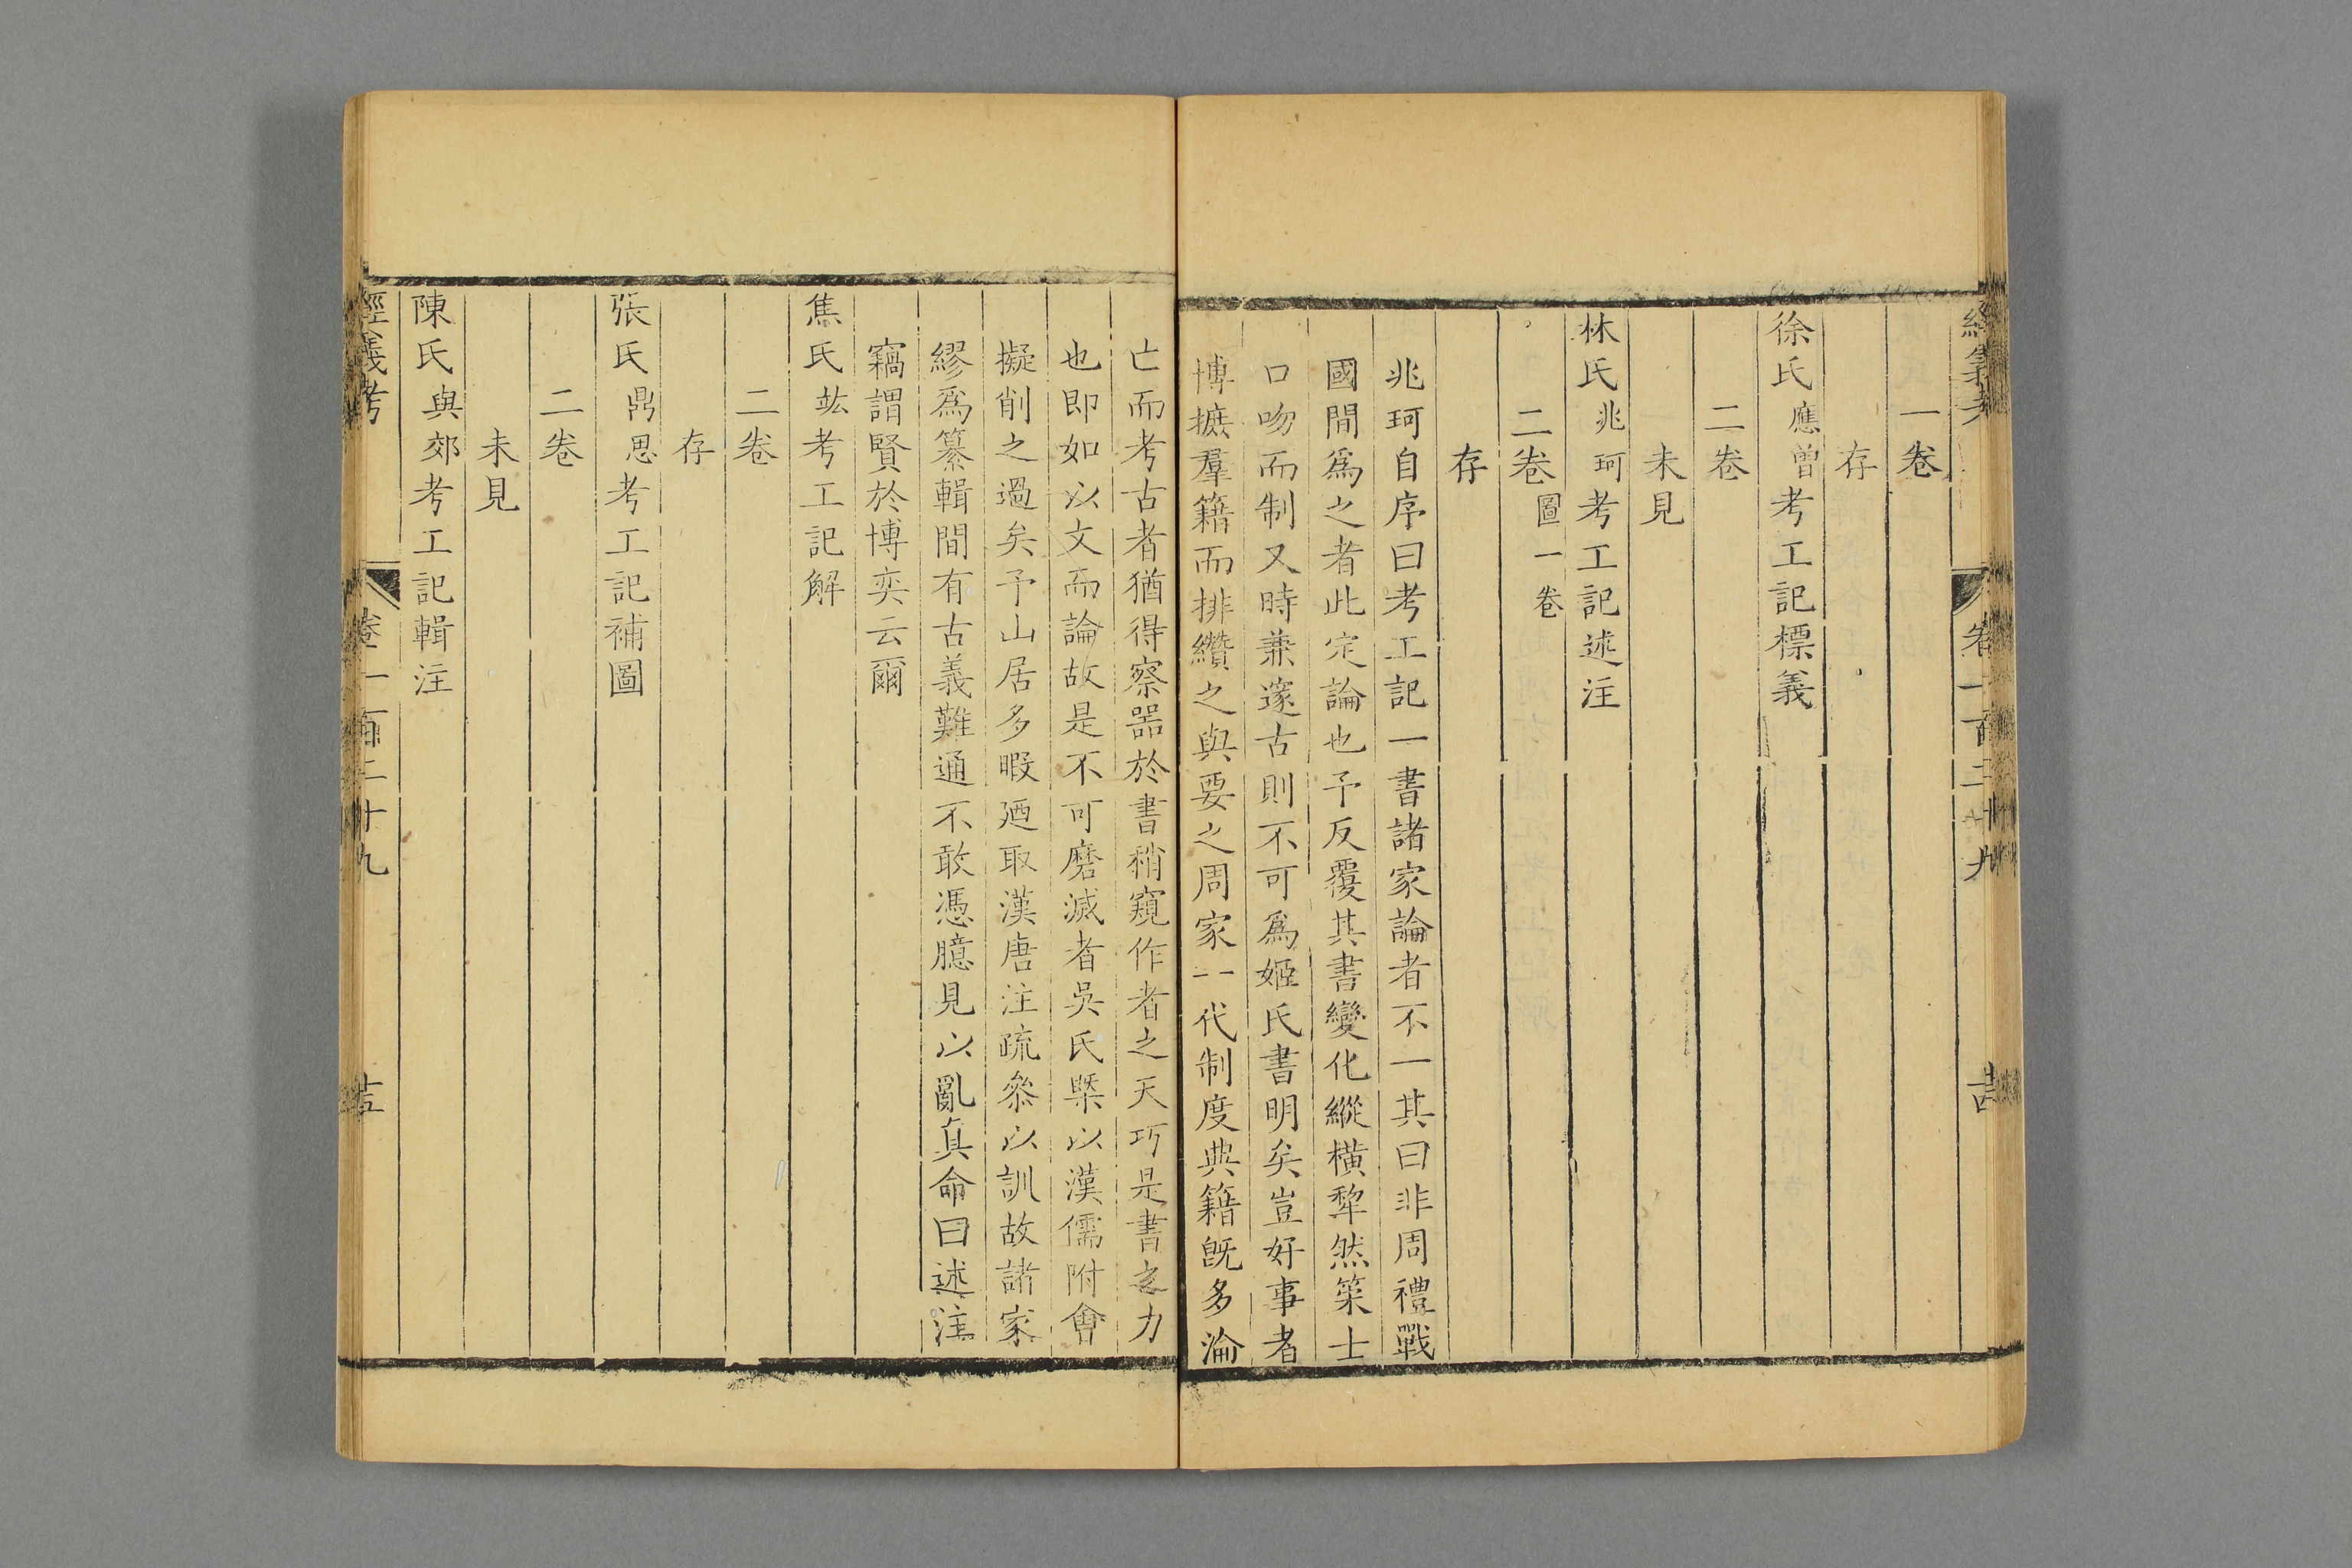 經義考 卷一百二十九 十四
一卷
存
徐氏應曾考工記標義
二卷
未見
林氏兆珂考工記述注
二卷圖一卷
存
兆珂自序曰考工記一書諸家論者不一其曰非周禮戰
國間爲之者此定論也予反覆其書變化縱橫犂然筞士
口吻而制又時兼邃古則不可爲姬氏書明矣豈好事者
博摭羣籍而排纘之與要之周家一代制度典籍旣多淪
亡而考古者猶得察噐於書稍窺作者之天巧是書之力
也即如以文而論故是不可磨滅者吳氏槩以漢儒附會
擬削之過矣予山居多暇廼取漢唐注疏叅以訓故諸家
繆爲纂輯間有古義難通不敢憑臆見以亂真命曰述注
竊謂賢於博奕云爾
焦氏竑考工記解
二卷
存
張氏鼎思考工記補圖
二卷
未見
陳氏與郊考工記輯注
經義考 卷一百二十九